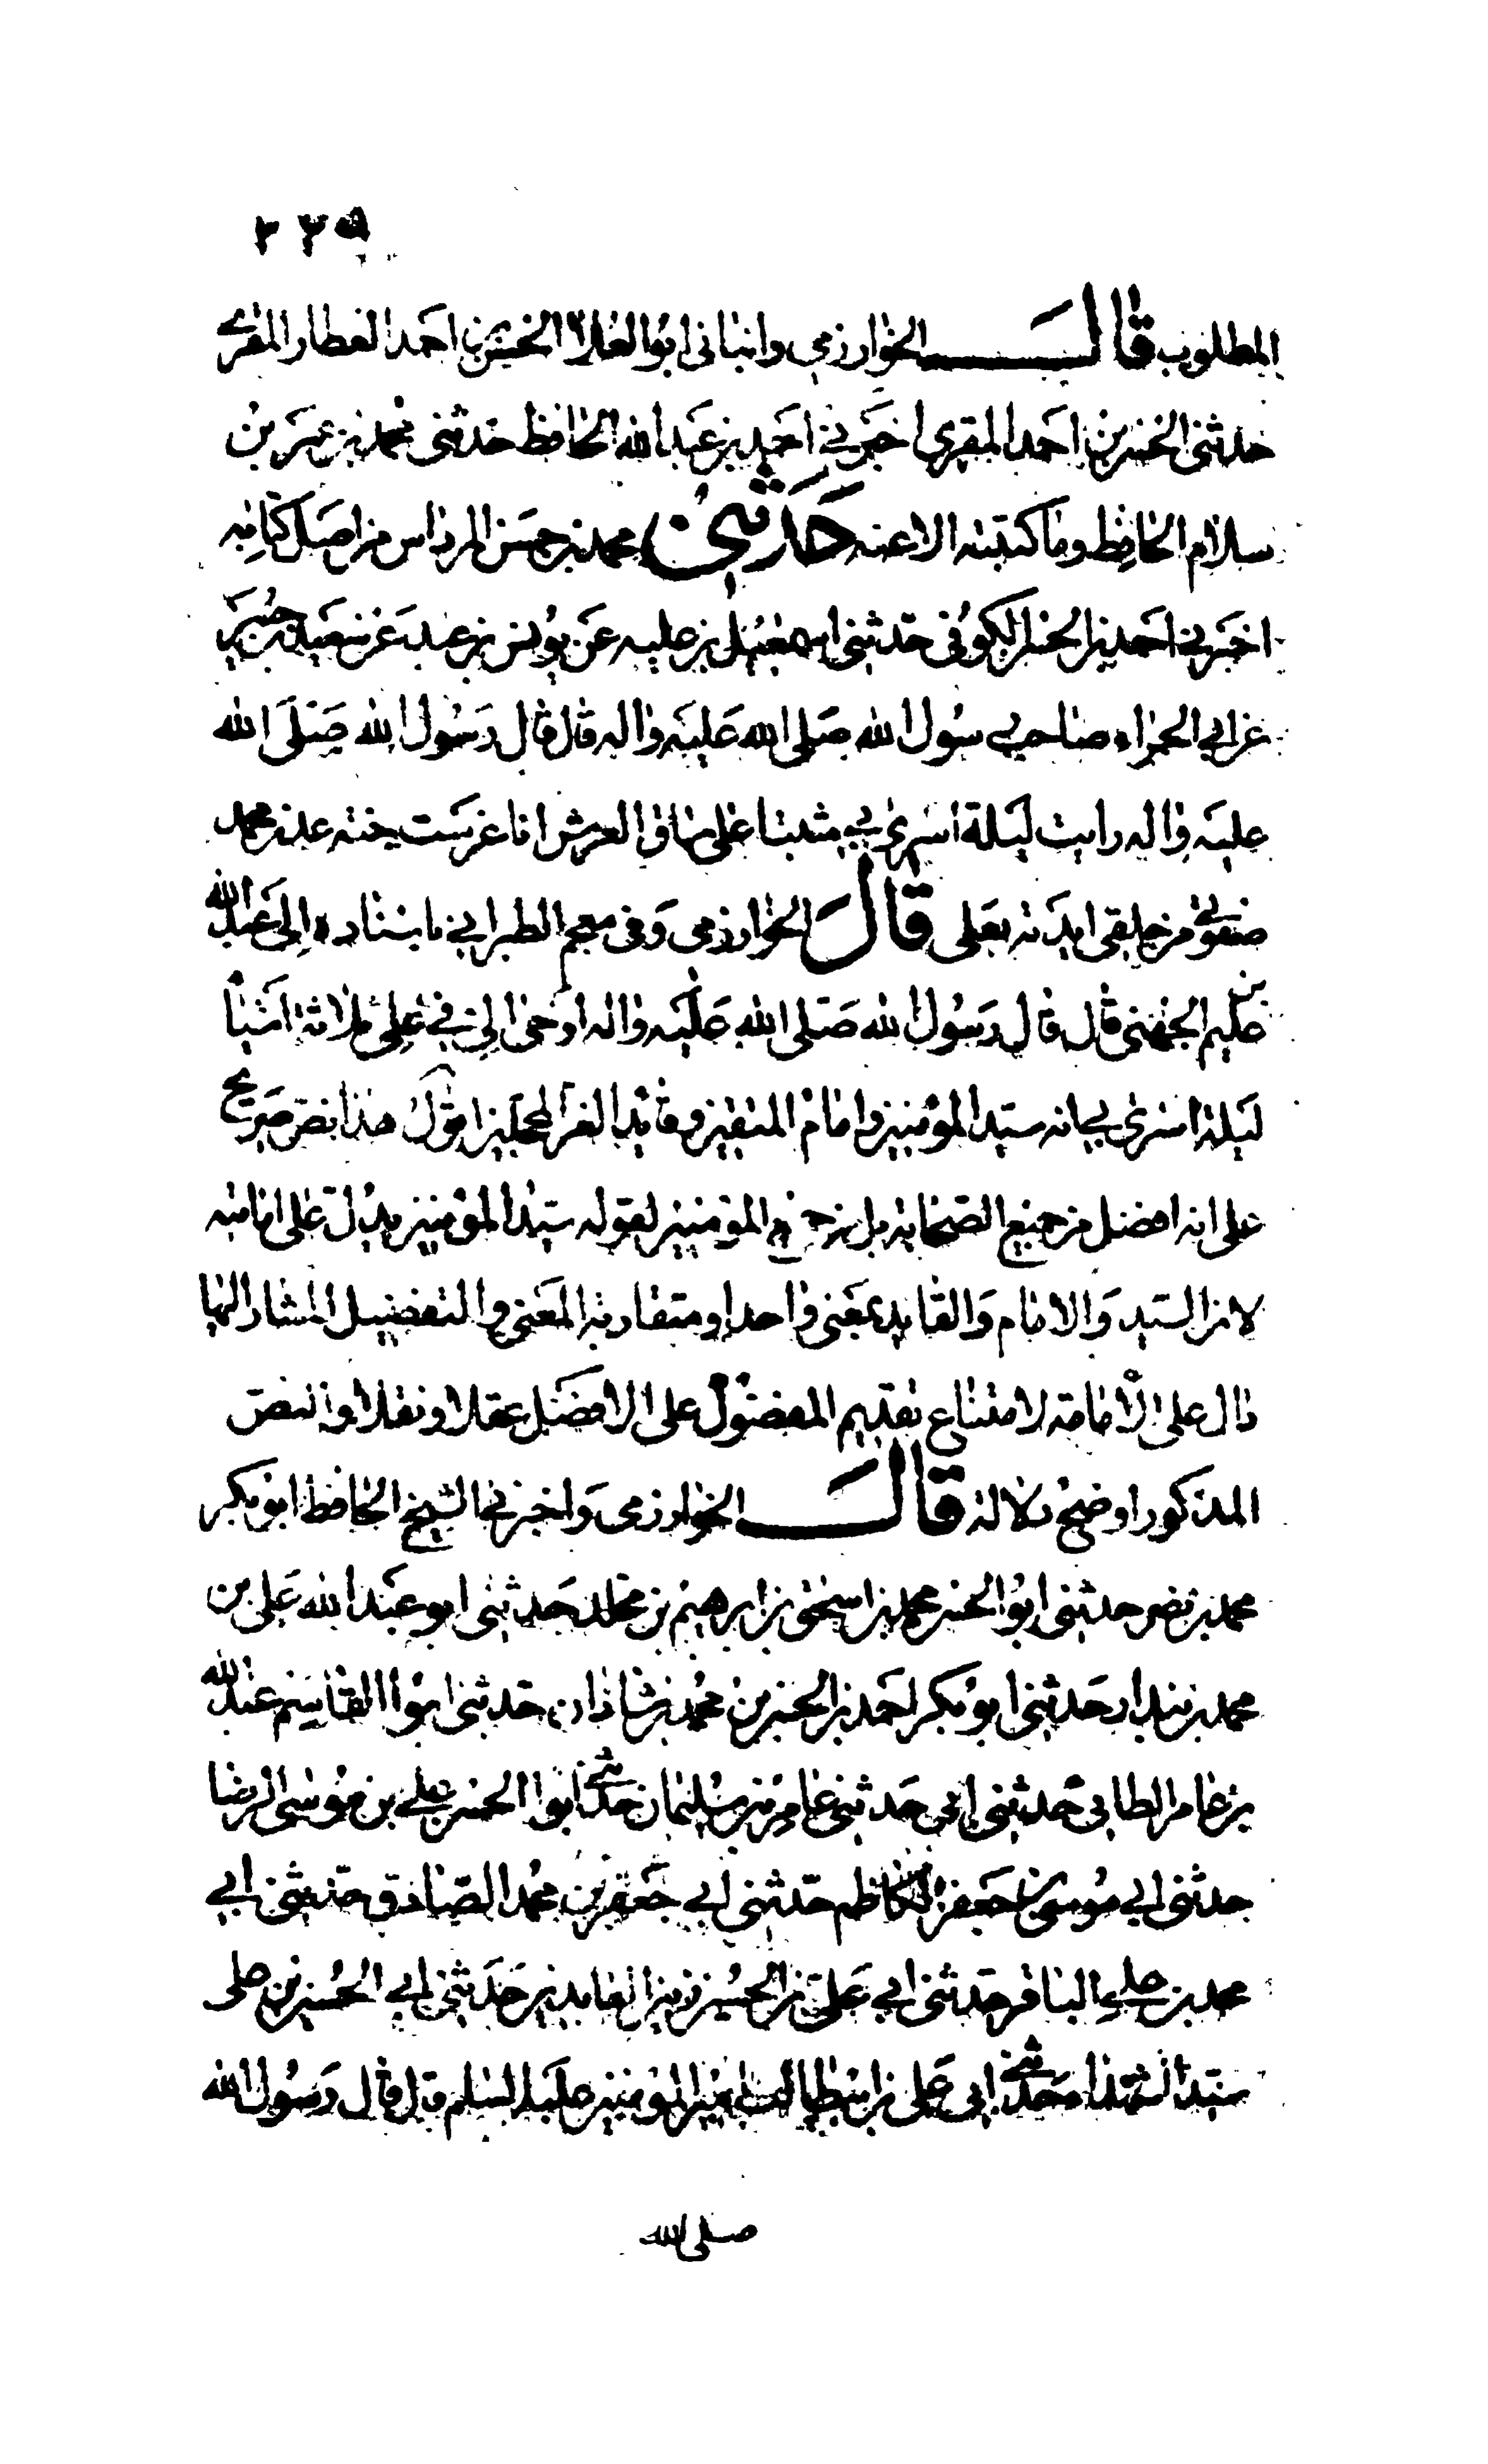 ٢٢٥
المطلوب قال الخوارزمي وانباني ابو العلا الحسن بن احمد العطار المقري
حدثني الحسن بن احمد المقري اخبرني احمد بن عبد الله الحافظ حدثني محمد بن عمر بن
سلام الحافظ وما كتبته الا عنه حدثني محمد بن حسن المرداس من اصل كتابه
اخبرني احمد بن الحسن الكوفي حدثني اسمعيل بن علية عن يونس بن عبيد عن سعيد بن جبير
عن ابي الحمراء صاحب رسول الله صلى الله عليه واله قال قال رسول الله صلى الله
عليه واله رايت ليلة اسري بي مثبتا على ساق العرش انا غرست جنة عدن محمد
صفوتي من خلقي ايدته بعلي قال الخوارزمي وفي معجم الطبراني باسناده الى عبد الله
بن عكيم الجهني قال قال رسول الله صلى الله عليه واله اوحى الي في علي ثلاثة اشيا
ليلة اسري بي انه سيد المؤمنين وامام المتقين وقائد الغر المحجلين اقول هذا نص صريح
على انه افضل من جميع الصحابة بل من جميع المؤمنين لقوله سيد المؤمنين يدل على امامته
لان السيد والامام والقايد بمعنى واحد او متقاربة المعنى والتفضيل المشار اليها
دال على الامامة لامتناع تقديم المفضول على الافضل عقلا ونقلا والنص
المذكور اوضح دلالة قال الخوارزمي واخبرني الشيخ الحافظ ابو بكر
محمد بن نصر حدثني ابو الحسن محمد بن اسحق بن ابرهيم بن مخلد حدثني ابو عبد الله علي بن
محمد بن بندار حدثني ابو بكر احمد بن الحسن بن محمد بن شاذان حدثني ابوا القاسم عبد الله
بن عامر الطايي حدثني ابي حدثني عامر بن سليمان حدثني ابوا الحسن علي بن موسى الرضا
حدثني ابي موسى بن جعفر الكاظم حدثني ابي جعفر بن محمد الصادق حدثني ابي
محمد بن علي الباقر حدثني ابي علي بن الحسين زين العابدين حدثني ابي الحسين بن علي
سيد الشهدا حدثني ابي علي بن ابيطالب امير المؤمنين عليه السلم قال قال رسول الله
صلى الله